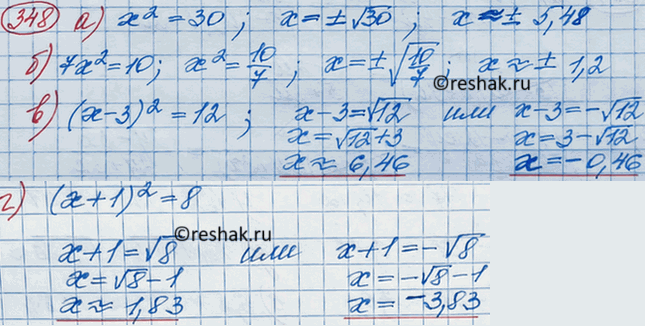 348 а) x² = 30; x = ±√30; x ≈ ± 5,48
б) 7x² = 10; x² = 10/7; x = ±√(10/7); x ≈ ± 1,2
в) (x-3)² = 12; x-3 = √12 или x-3 = -√12
x = √12 + 3 x = 3 - √12
x ≈ 6,46 x = -0,46
©reshak.ru
г) (x+1)² = 8
©reshak.ru
x+1 = √8 или x+1 = -√8
x = √8 - 1 x = -√8 - 1
x ≈ 1,83 x = -3,83